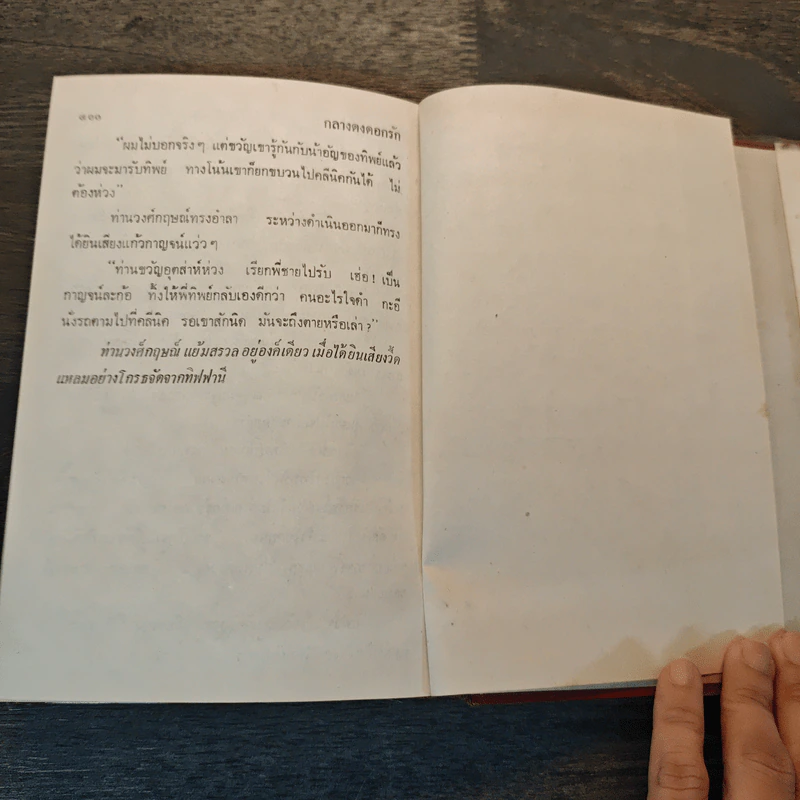 ๙๑๑ กลางดงดอกรัก
"ผมไม่บอกจริงๆ แต่ขวัญเขารู้กันกับน้าอัญของทิพย์แล้ว
ว่าผมจะมารับทิพย์ ทางโน้นเขาก็ยกขบวนไปคลีนิคกันได้ ไม่
ต้องห่วง"
ท่านวงศ์กฤษณ์ทรงอำลา ระหว่างดำเนินออกมาก็ทรง
ได้ยินเสียงแก้วกาญจน์แว่วๆ
"ท่านขวัญอุตส่าห์ห่วง เรียกพี่ชายไปรับ เฮ่อ! เป็น
กาญจน์ละก้อ ทิ้งให้พี่ทิพย์กลับเองดีกว่า คนอะไรใจดำ กะอี
นั่งรถตามไปที่คลีนิค รอเขาสักนิด มันจะถึงตายหรือเล่า?"
ท่านวงศ์กฤษณ์ แย้มสรวล อยู่องค์เดียว เมื่อได้ยินเสียงวี้ด
แหลมอย่างโกรธจัดจากทิฟฟานี